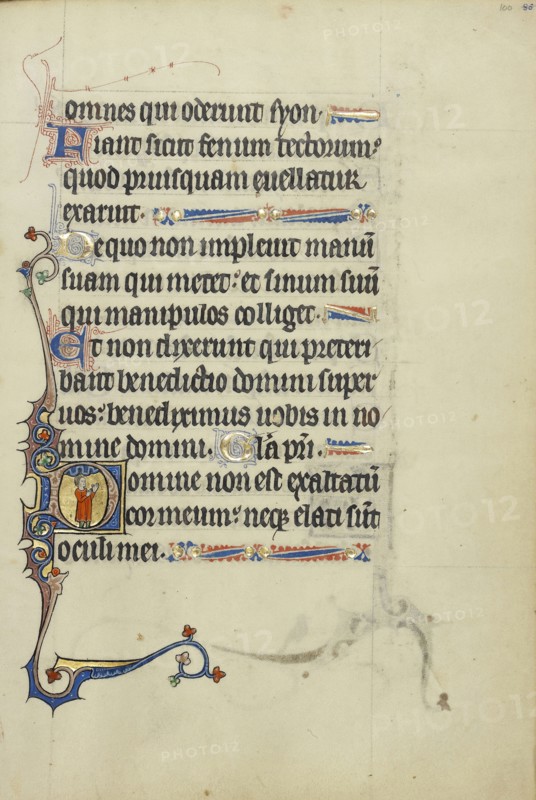 100 86
omnes qui oderunt syon.
Fiant sicut fenum tectorum:
quod priusquam euellatur
exaruit.
De quo non impleuit manū
suam qui metet: et sinum suū
qui manipulos colliget.
Et non dixerunt qui preteri
bant benedictio domini super
uos: benediximus uobis in no
mine domini. Gl'a p̄ri.
Domine non est exaltatū
cor meum: neq̢ elati sūt
oculi mei.
PHOTO12